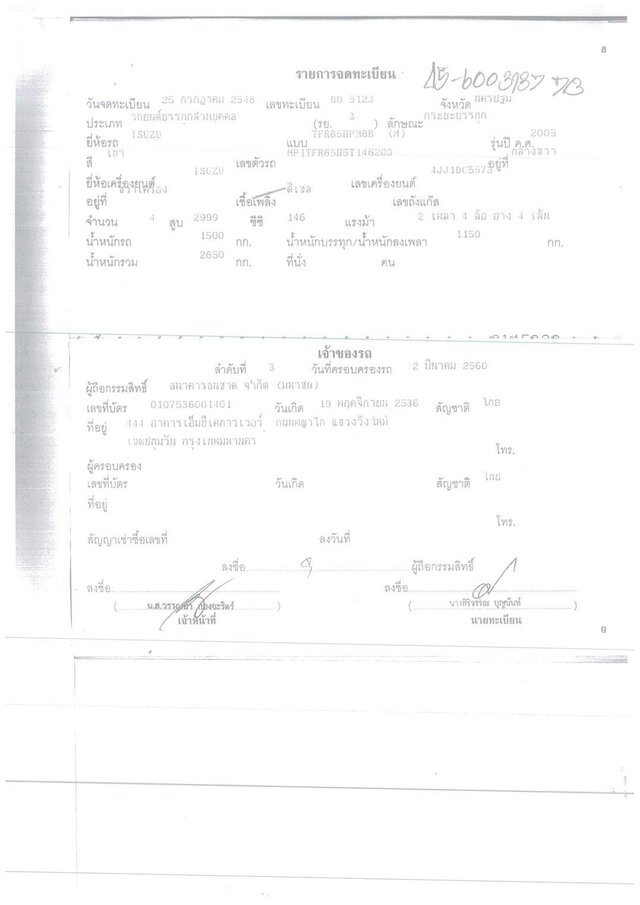 8
รายการจดทะเบียน
วันจดทะเบียน 25 กรกฎาคม 2548 เลขทะเบียน 5123 จังหวัด นครปฐม
ประเภท รถยนต์บรรทุกส่วนบุคคล (รย. 3 ) ลักษณะ กระบะบรรทุก
ยี่ห้อรถ ISUZU แบบ (M) รุ่นปี ค.ศ. 2005
สี เทา เลขตัวรถ MP1TFR85H5T146203 อยู่ที่ กลางขวา
ยี่ห้อเครื่องยนต์ ISUZU เลขเครื่องยนต์ 4JJ1DC5573
อยู่ที่ ขวาเครื่อง เชื้อเพลิง ดีเซล เลขถังแก๊ส
จำนวน 4 สูบ 2999 ซีซี 146 แรงม้า 2 เพลา 4 ล้อ ยาง 4 เส้น
น้ำหนักรถ 1500 กก. น้ำหนักบรรทุก/น้ำหนักลงเพลา 1150 กก.
น้ำหนักรวม 2650 กก. ที่นั่ง คน
เจ้าของรถ
ลำดับที่ 3 วันที่ครอบครองรถ 2 มีนาคม 2560
ผู้ถือกรรมสิทธิ์ ธนาคารธนชาต จำกัด (มหาชน)
เลขที่บัตร 0107536001401 วันเกิด 19 พฤศจิกายน 2536 สัญชาติ ไทย
ที่อยู่ 444 อาคารเอ็มบีเคทาวเวอร์ ถนนพญาไท แขวงวังใหม่
เขตปทุมวัน กรุงเทพมหานคร
โทร.
ผู้ครอบครอง
เลขที่บัตร วันเกิด สัญชาติ ไทย
ที่อยู่
โทร.
สัญญาเช่าซื้อเลขที่ ลงวันที่
ลงชื่อ ผู้ถือกรรมสิทธิ์
ลงชื่อ ลงชื่อ
( น.ส. ) ( บุญนันท์ )
เจ้าหน้าที่ นายทะเบียน
9